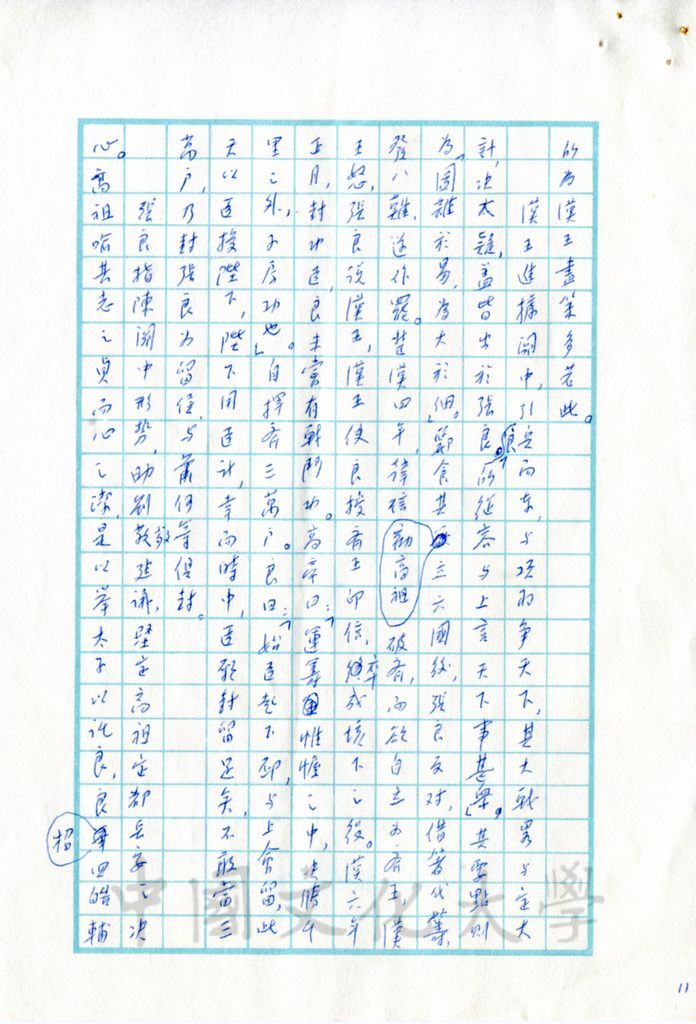 的為漢王盡策多若此。
漢王進據關中，引兵而東，与項羽争天下，其大戰畧与定大
計，决太疑，盖皆出於張良。「良所從容与上言天下事甚衆」，其要點則
為「圖難於易，為大於細。」酈食其立六國後，張良反对，借箸代籌，
發八難，遂作罷。楚漢四年，韓信破齐，而欲自立為齐王，漢
勸高祖
王怒，張良说漢王，漢王使良授齐王印信，卒成垓下之役。漢六年
正月，封功臣，良未嘗有戰鬥功。高帝曰：「運籌帷幄之中，决勝千
里之外，子房功也」。自擇齐三萬户。良曰：「始臣起下邳，与上會留，此
天以臣授陛下，陛下用臣计，幸而時中，臣願封留足矣，不敢當三
萬户，乃封張良为留侯，与蕭何等俱封。
張良指陳關中形势，助刘敬延议，坚定高祖定都長安之决
心。高祖喻其志之貞而心之潔，是以举太子以託良，良四皓輔
招
中國文化大學
11